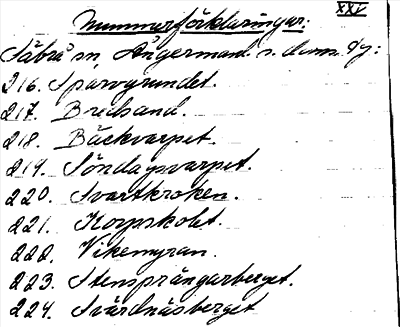 XXV
Nummerförklaringar:
Säbrå sn, Ångermanl. s. doms. dy:
216. Sparvgrundet.
217. Bredsand.
218. Bäckvarpet.
219. Söndagsvarpet.
220. Svartkroken.
221. Korpskolet.
222. Vikemyran.
223. Stensprängarberget.
224. Svärdnäsberget